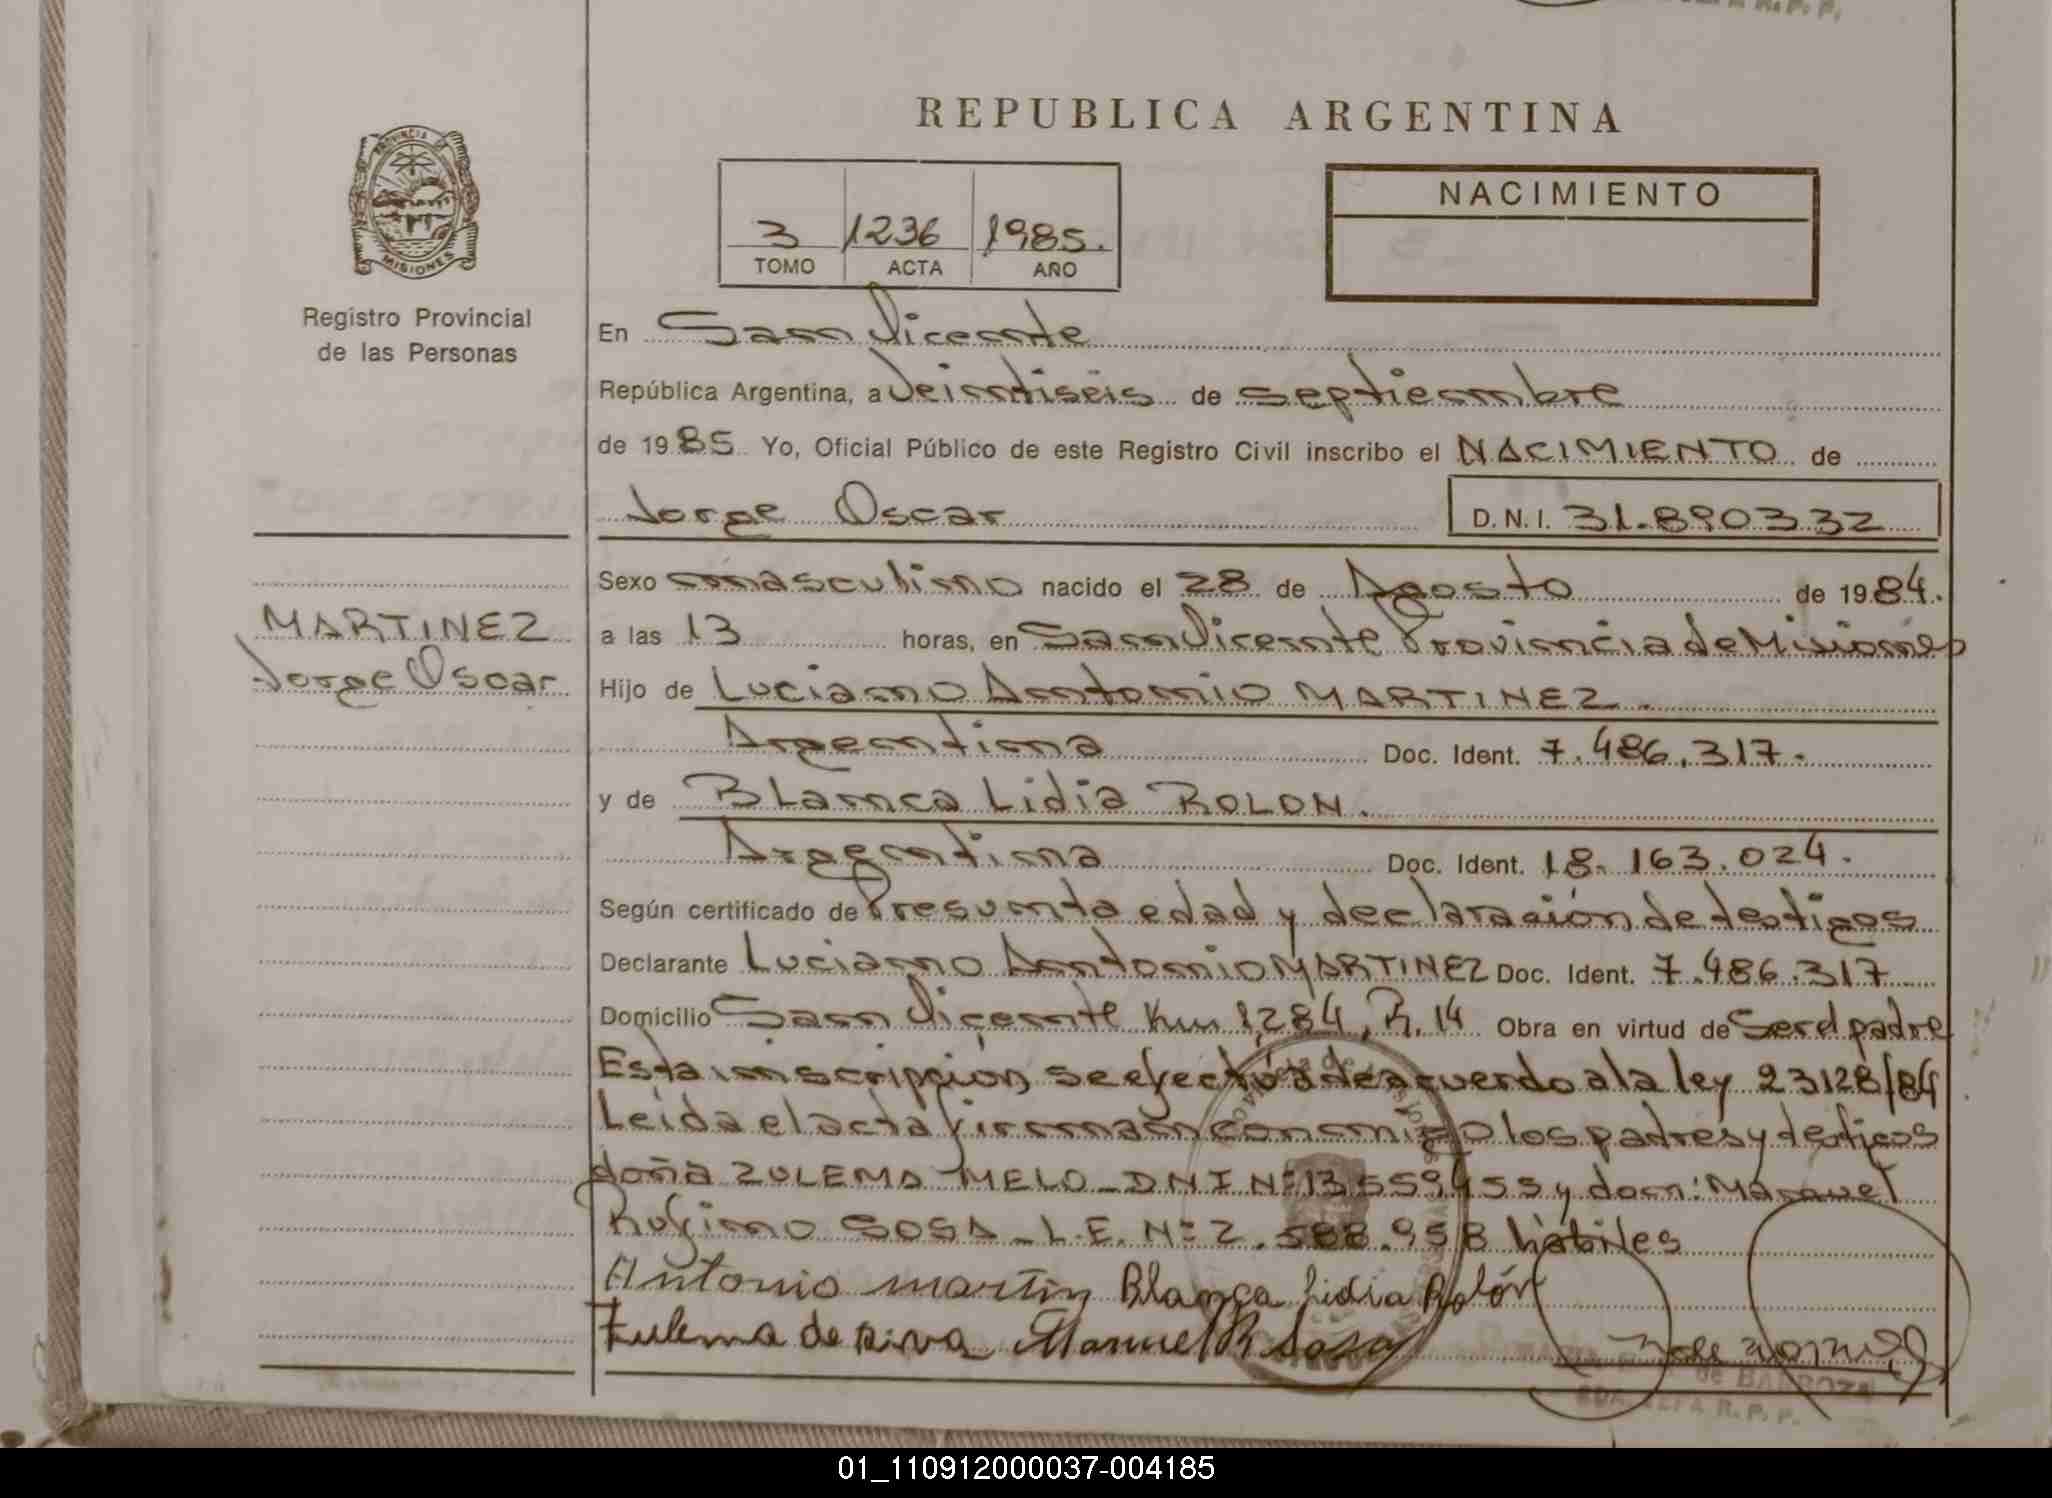 REPUBLICA ARGENTINA
PROVINCIA DE
MISIONES
Registro Provincial
de las Personas
3 1236 1985.
TOMO ACTA AÑO
NACIMIENTO
En San Vicente
República Argentina, a Veintiséis de septiembre
de 1985 Yo, Oficial Público de este Registro Civil inscribo el NACIMIENTO de
Jorge Oscar D.N.I. 31.890332
MARTINEZ
Jorge Oscar
Sexo masculino nacido el 28 de Agosto de 1984.
a las 13 horas, en San Vicente Provincia de Misiones
Hijo de Luciano Antonio MARTINEZ.
Argentina Doc. Ident. 7.486.317.
y de Blanca Lidia ROLON.
Argentina Doc. Ident. 18.163.024.
Según certificado de Presunta edad y declaración de testigos
Declarante Luciano Antonio MARTINEZ Doc. Ident. 7.486.317
Domicilio San Vicente Km 1284, R. 14 Obra en virtud de Ser el padre
Esta inscripción se efectúa de acuerdo a la ley 23128/84
Leída el acta firman conmigo los padres y testigos
doña ZULEMA MELO - DNI Nº 13559455 y don: Manuel
Rufino SOSA - L.E. Nº 2.588.958 hábiles
Antonio martin Blanca Lidia Rolón
Zulema de Manuel R Sosa
de BARBOZA
R. P. P.
01_110912000037-004185